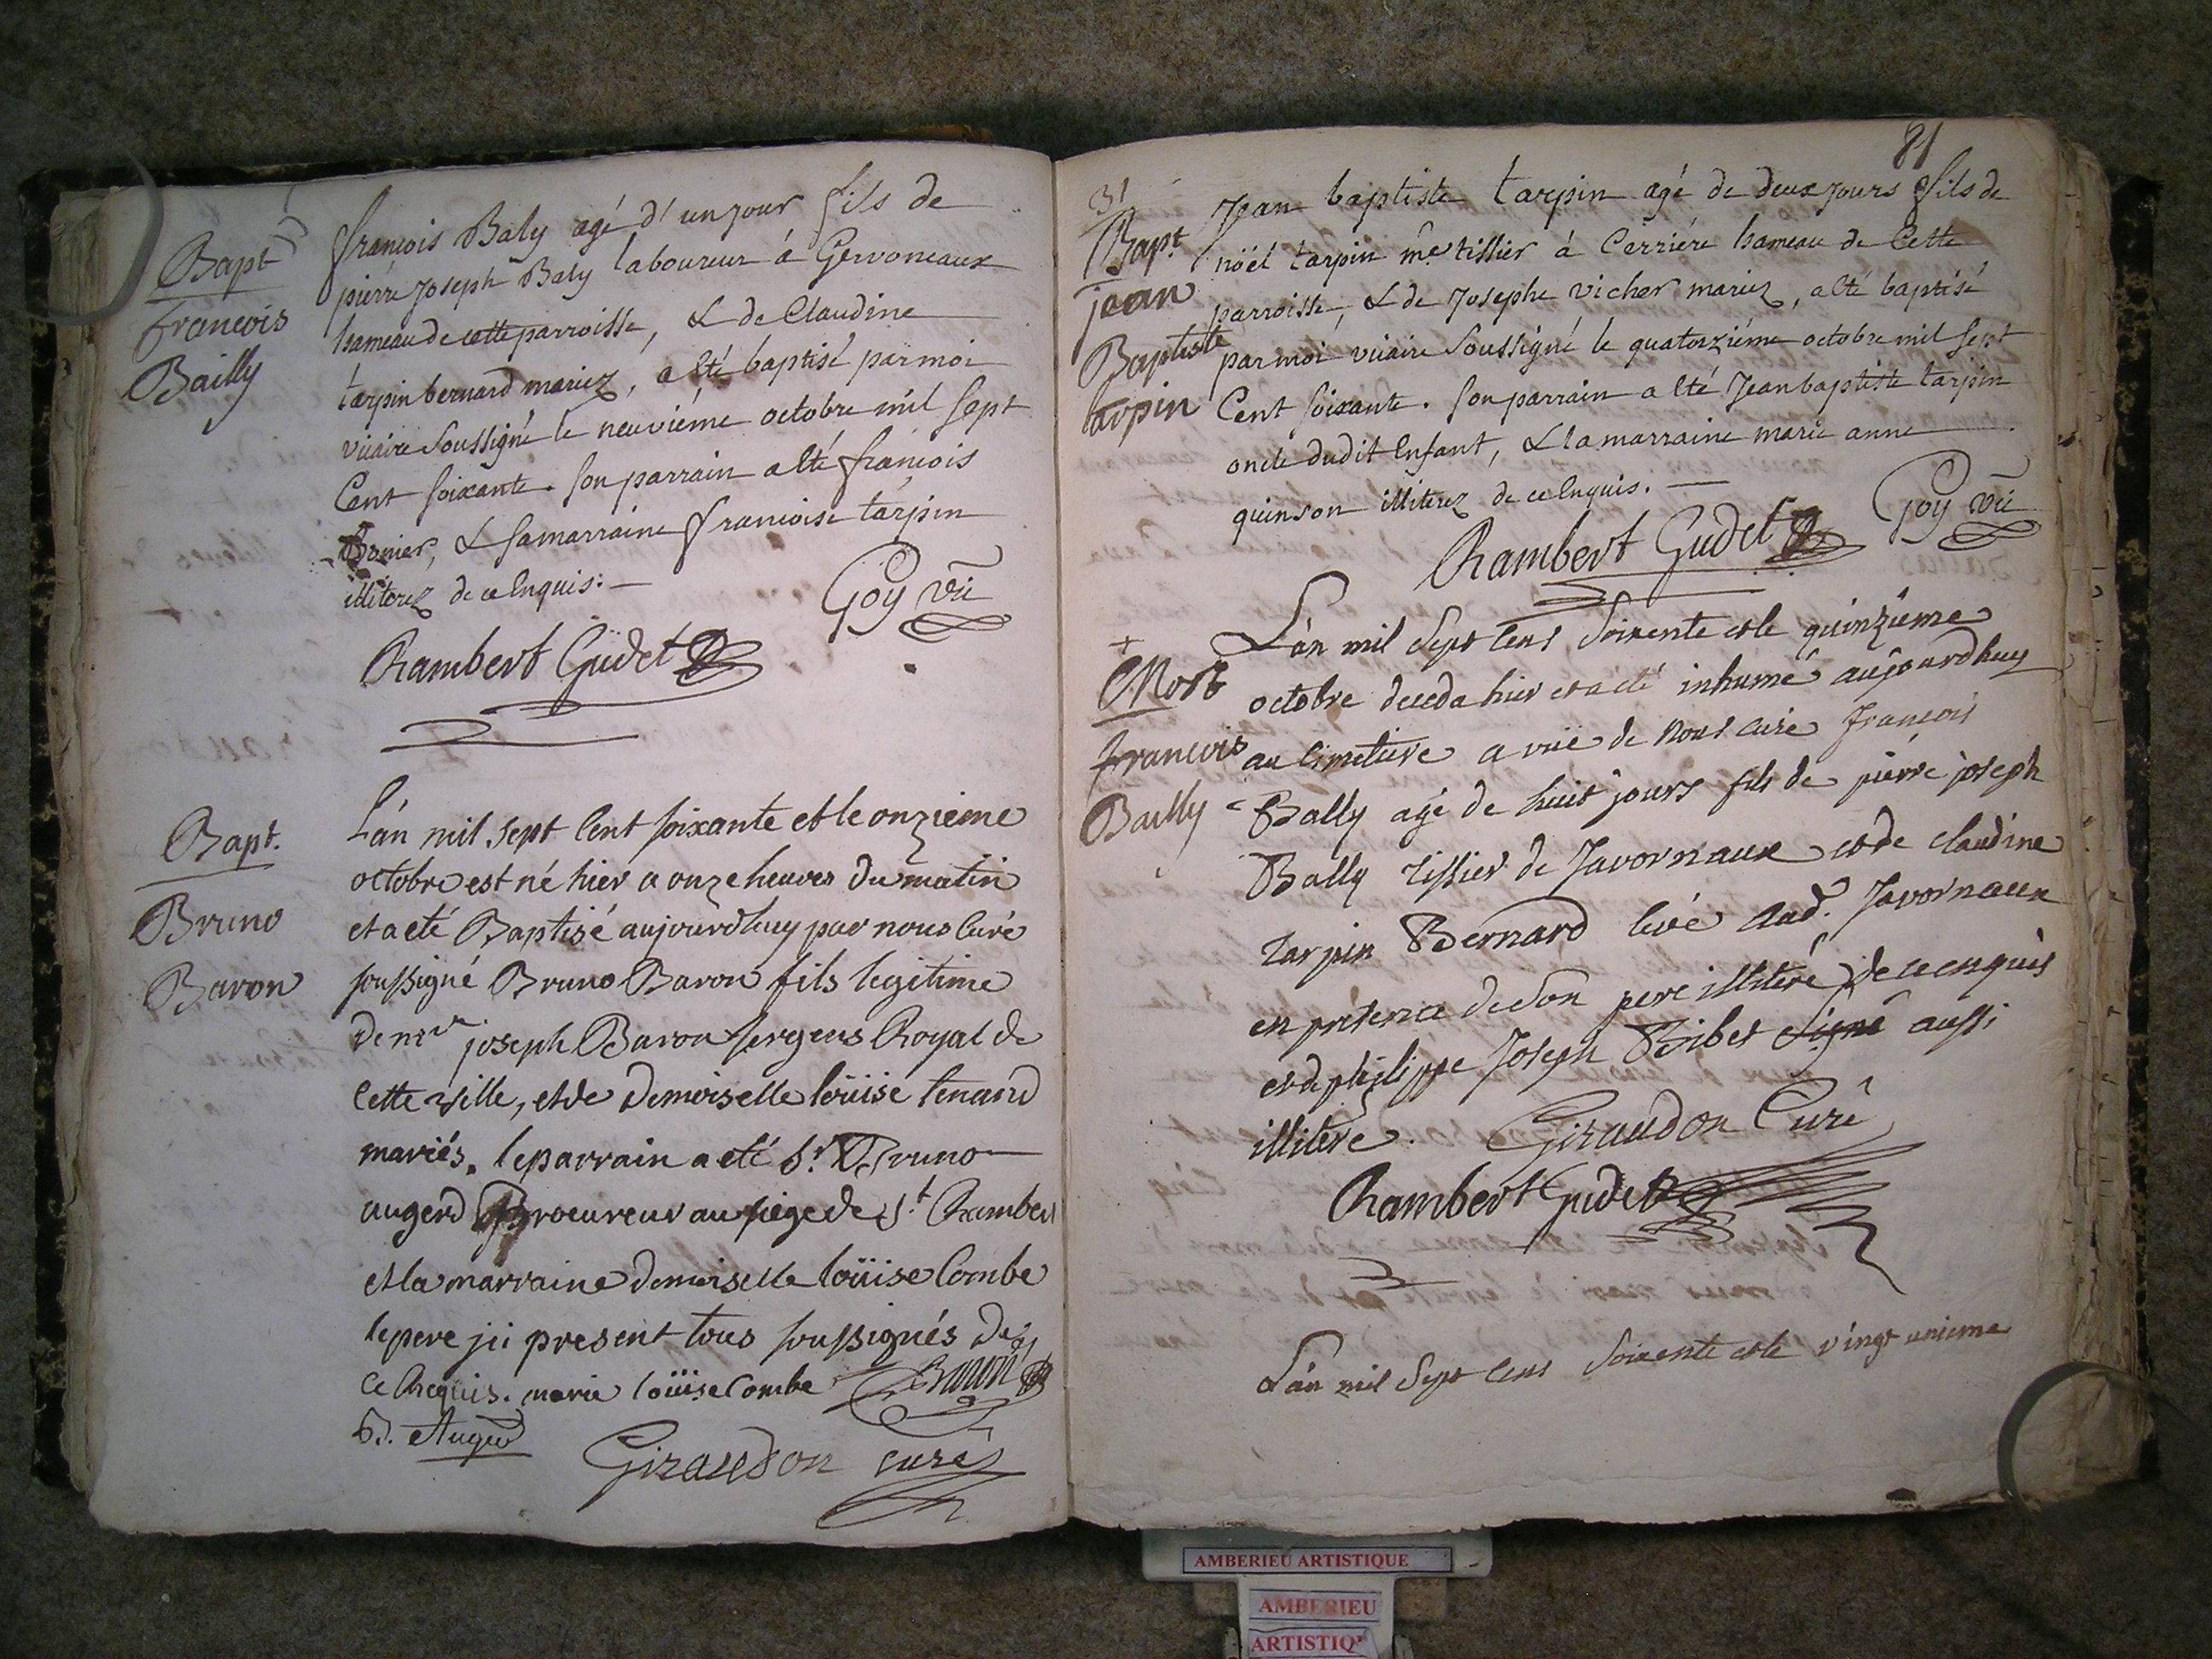 Bapt
francois
Bailly
françois Baly agé d'un jour fils de
pierre joseph Baly laboureur à Gervoneaux
hameau de cette parroisse, & de Claudine
tarpin bernard mariez, a eté baptisé par moi
vicaire soussigné le neuviéme octobre mil sept
Cent soixante. son parrain a eté françois
& sa marraine francoise tarpin
illiterez de ce enquis:
Goy vic
Rambert Gudet
Bapt.
Bruno
Baron
L'an mil sept Cent soixante et le onzieme
octobre est né hier a onze heures du matin
et a eté Baptisé aujourdhuy par nous Curé
soussigné Bruno Baron fils legitime
de mr joseph Baron sergens Royal de
Cette ville, et de Demoiselle loüise tenand
mariés. le parrain a eté Sr. Bruno
augerd Procureur au siege de St. Rambert
et la marraine demoiselle loüise Combe
le pere ji present tous soussignés de
Ce Requis. marie loüise Combe Baron
B. Augerd
Giraudon curé
81
31
Bapt.
jean
Baptiste
tarpin
Jean baptiste tarpin agé de deux jours fils de
nöel tarpin me tissier à Cerriére hameau de Cette
parroisse, & de Josephe vicher mariez, a eté baptisé
par moi vicaire soussigné le quatorziéme octobre mil sept
Cent soixante. son parrain a eté Jean baptiste tarpin
oncle dudit Enfant, & la marraine marie anne
quinson illiterez de ce enquis.
Rambert Gudet
Goy vic
+
Mort
francois
Bailly
L'an mil Sept Cens Soixente et le quinzieme
octobre deceda hier et a eté inhumé aujourdhuy
au Cimetiere a vüe de Nous curé françois
Bally agé de huit jours fils de pierre joseph
Bally tissier de Javornaux et de claudine
tarpin Bernard levé aud. Javornaux
en presence de son pere illiteré de ce enquis
et de philippe Joseph Bibet Signé aussi
illiteré.
Giraudon Curé
Rambert Gudet
L'an mil Sept Cens Soixente et le vingt unieme
AMBERIEU ARTISTIQUE
AMBERIEU
ARTISTIQ